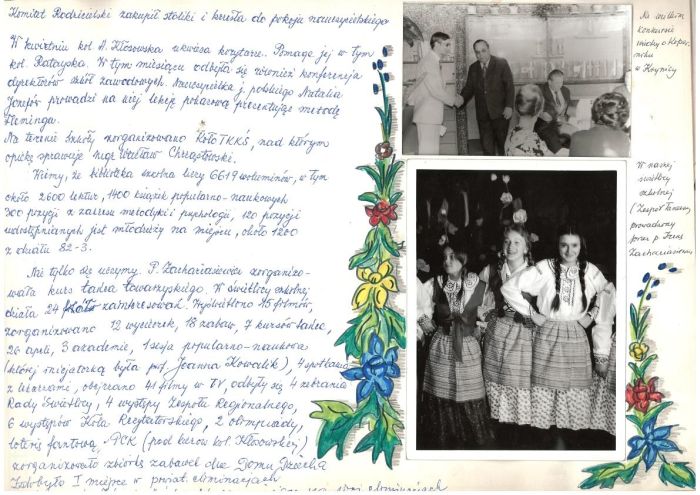 Komitet Rodzicielski zakupił stoliki i krzesła do pokoju nauczycielskiego
W kwietniu kol. A. Kłosowska ukwieca korytarze. Pomaga jej w tym
kol. Ratajska. W tym miesiącu odbyła się również konferencja
dyrektorów szkół zawodowych. Nauczycielka j. polskiego Natalia
prowadzi na niej lekcję pokazową prezentując metodę
Fleminga.
Na terenie szkoły zorganizowano Koło TKKŚ, nad którym
opiekę sprawuje mgr Wacław Chrząstowski.
Wiemy, że biblioteka szkolna liczy 6619 woluminów, w tym
około 2600 lektur, 1400 książek popularno-naukowych
300 pozycji z zakresu metodyki i psychologii, 120 pozycji
udostępnianych jest młodzieży na miejscu, około 1200
z działu 82-3.
Nie tylko się uczymy. P. Zachariasiewicz zorganizo-
wała kurs tańca towarzyskiego. W świetlicy szkolnej
działa 24 zainteresowań. Wyświetlono 15 filmów,
zorganizowano 12 wycieczek, 18 zabaw, 7 kursów tańca,
26 apeli, 3 akademie, 1 sesja popularno-naukowa
(której inicjatorką była prof. Joanna Kowalik), 4 spotkania
z lekarzami, obejrzano 41 filmy w TV, odbyły się 4 zebrania
Rady Świetlicy, 4 występy Zespołu Regionalnego,
6 występów Koła Recytatorskiego, 2 olimpiady,
loterię fantową, PCK (pod kierow. kol. Kłosowskiej)
zorganizowało zbiórkę zabawek dla Domu Dziecka
Zdobyło I miejsce w powiat. eliminacjach
Na wielkim
konkursie
wiedzy o Koper-
niku
w Krynicy
W naszej
świetlicy
szkolnej
(Zespół Taneczny
prowadzony
przez p. Irenę
Zachariasiewicz